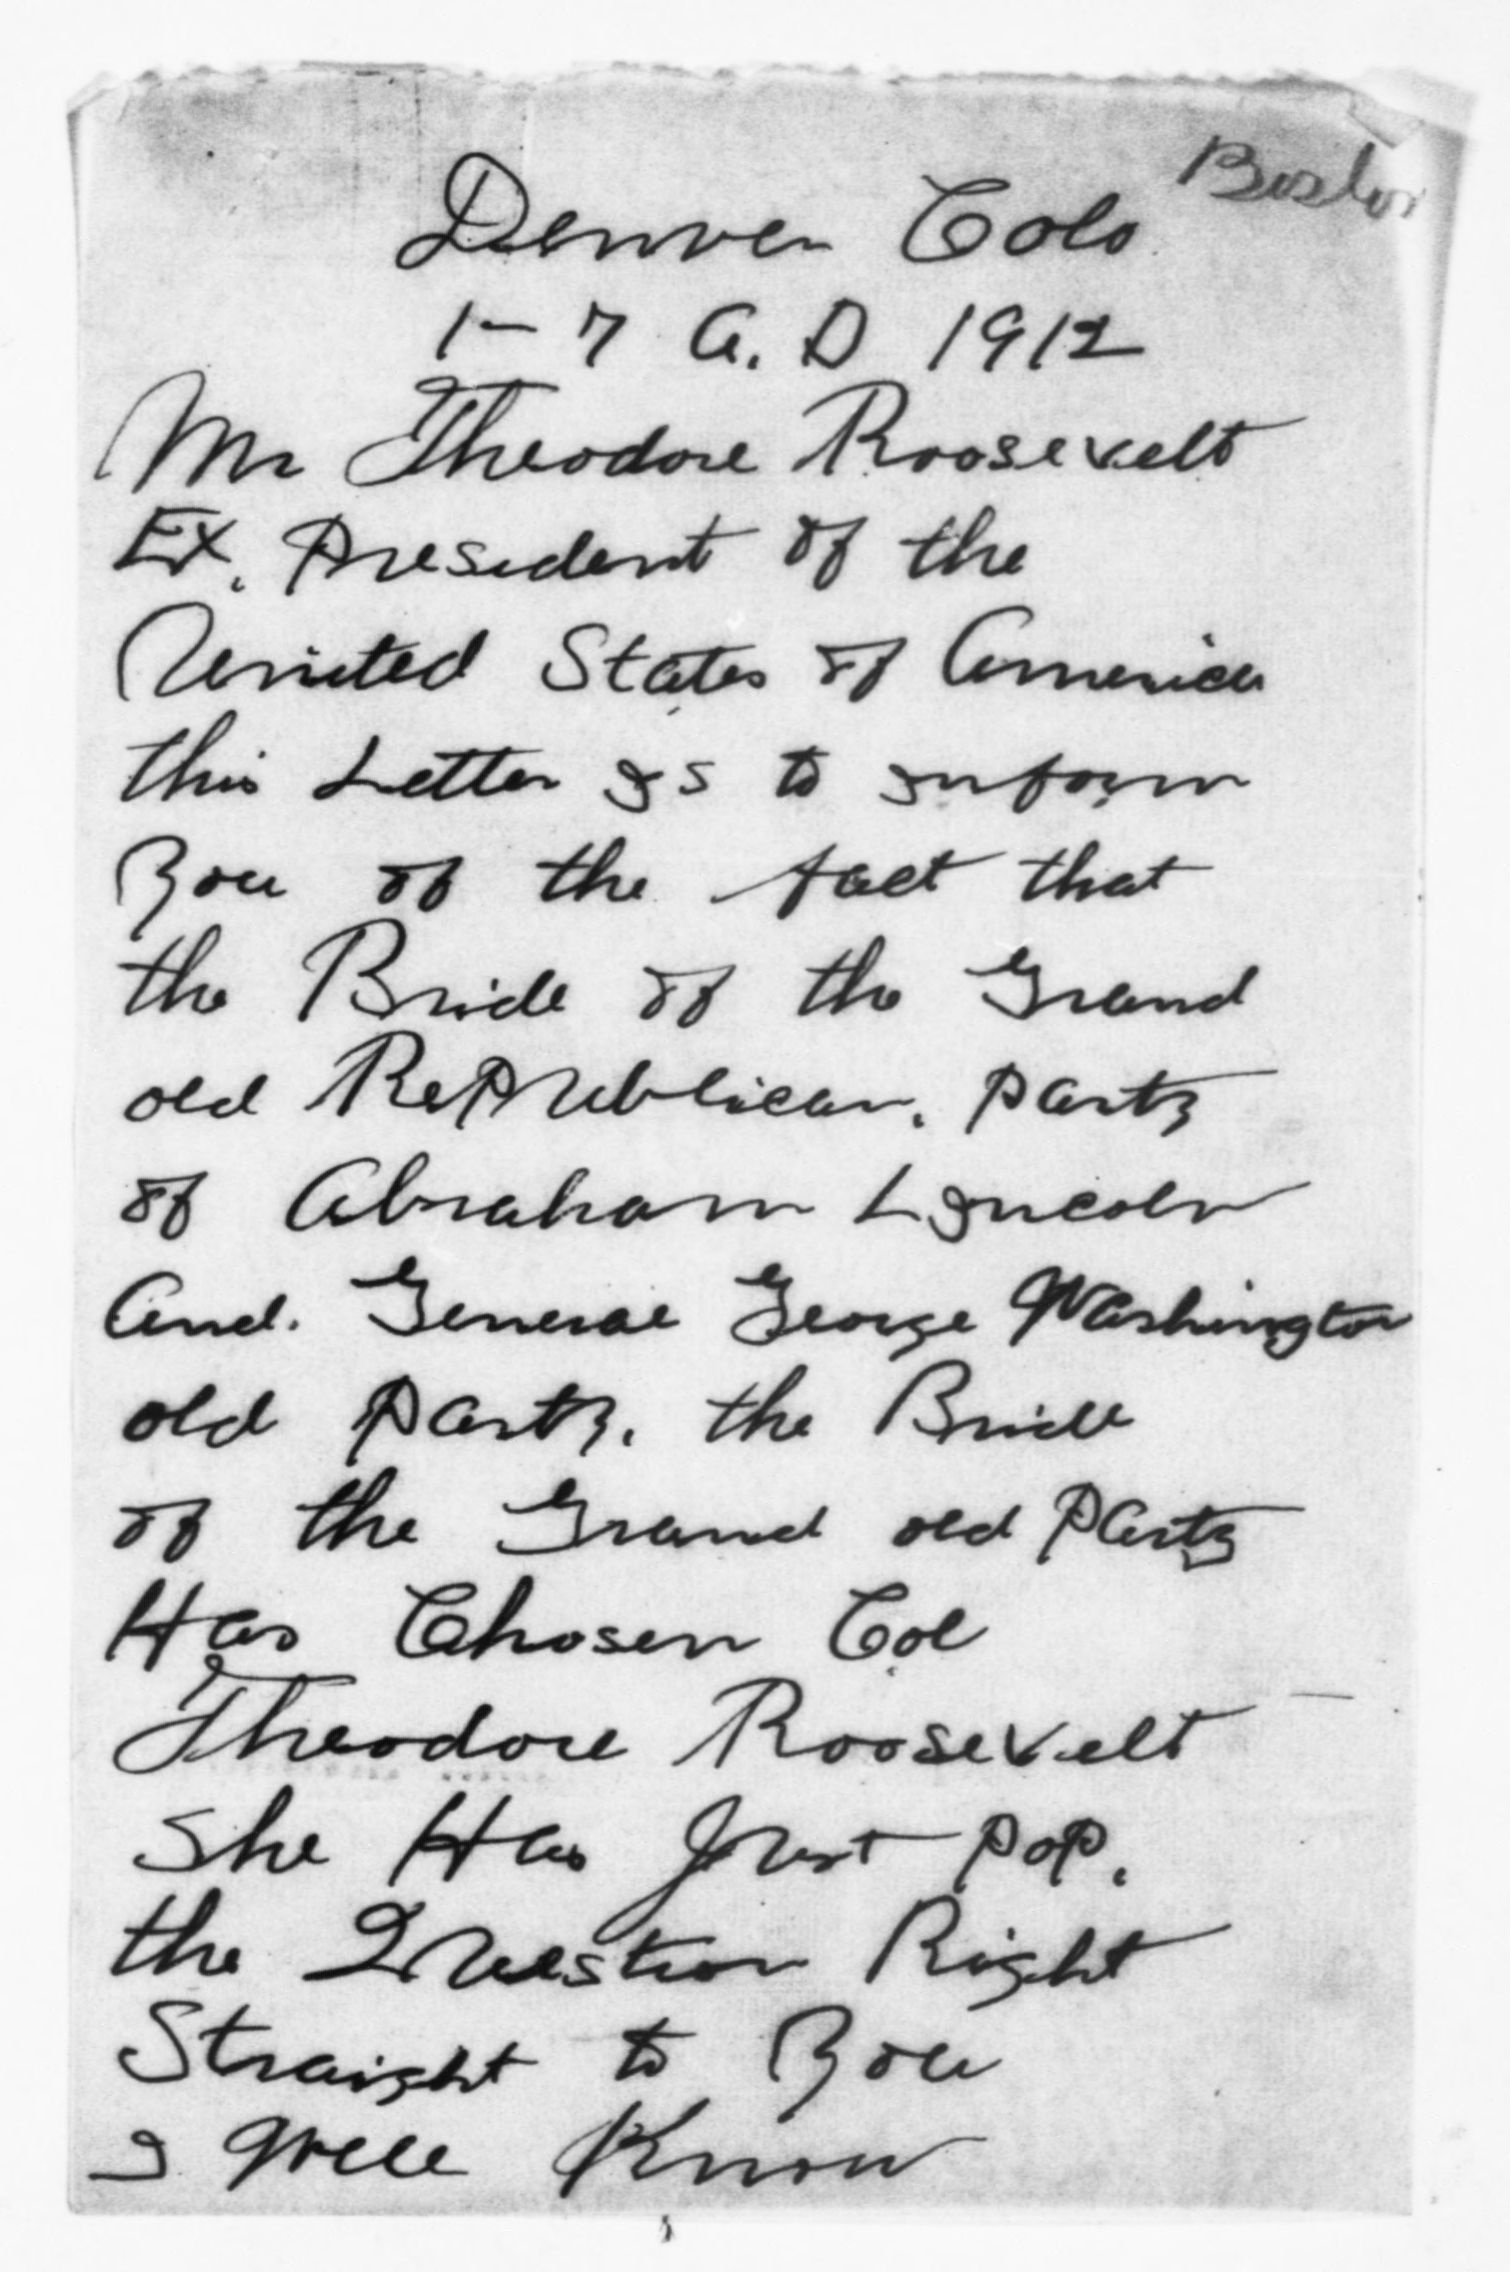 Boston
Denver Colo
1-7 A. D 1912
Mr Theodore Roosevelt
Ex. President of the
United States of America
this Letter is to inform
You of the fact that
the Bride of the Grand
old RePublican. Party
of Abraham Lincoln
And. General George Washington
old Party. the Bride
of the Grand old Party
Has Chosen Col
Theodore Roosevelt
She Has Just PoP.
the Question Right
Straight to You
I Well Know